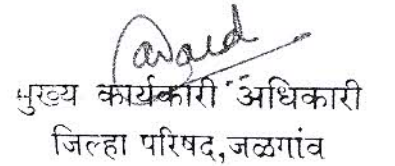 मुख्य कार्यकारी अधिकारी
जिल्हा परिषद,जळगांव